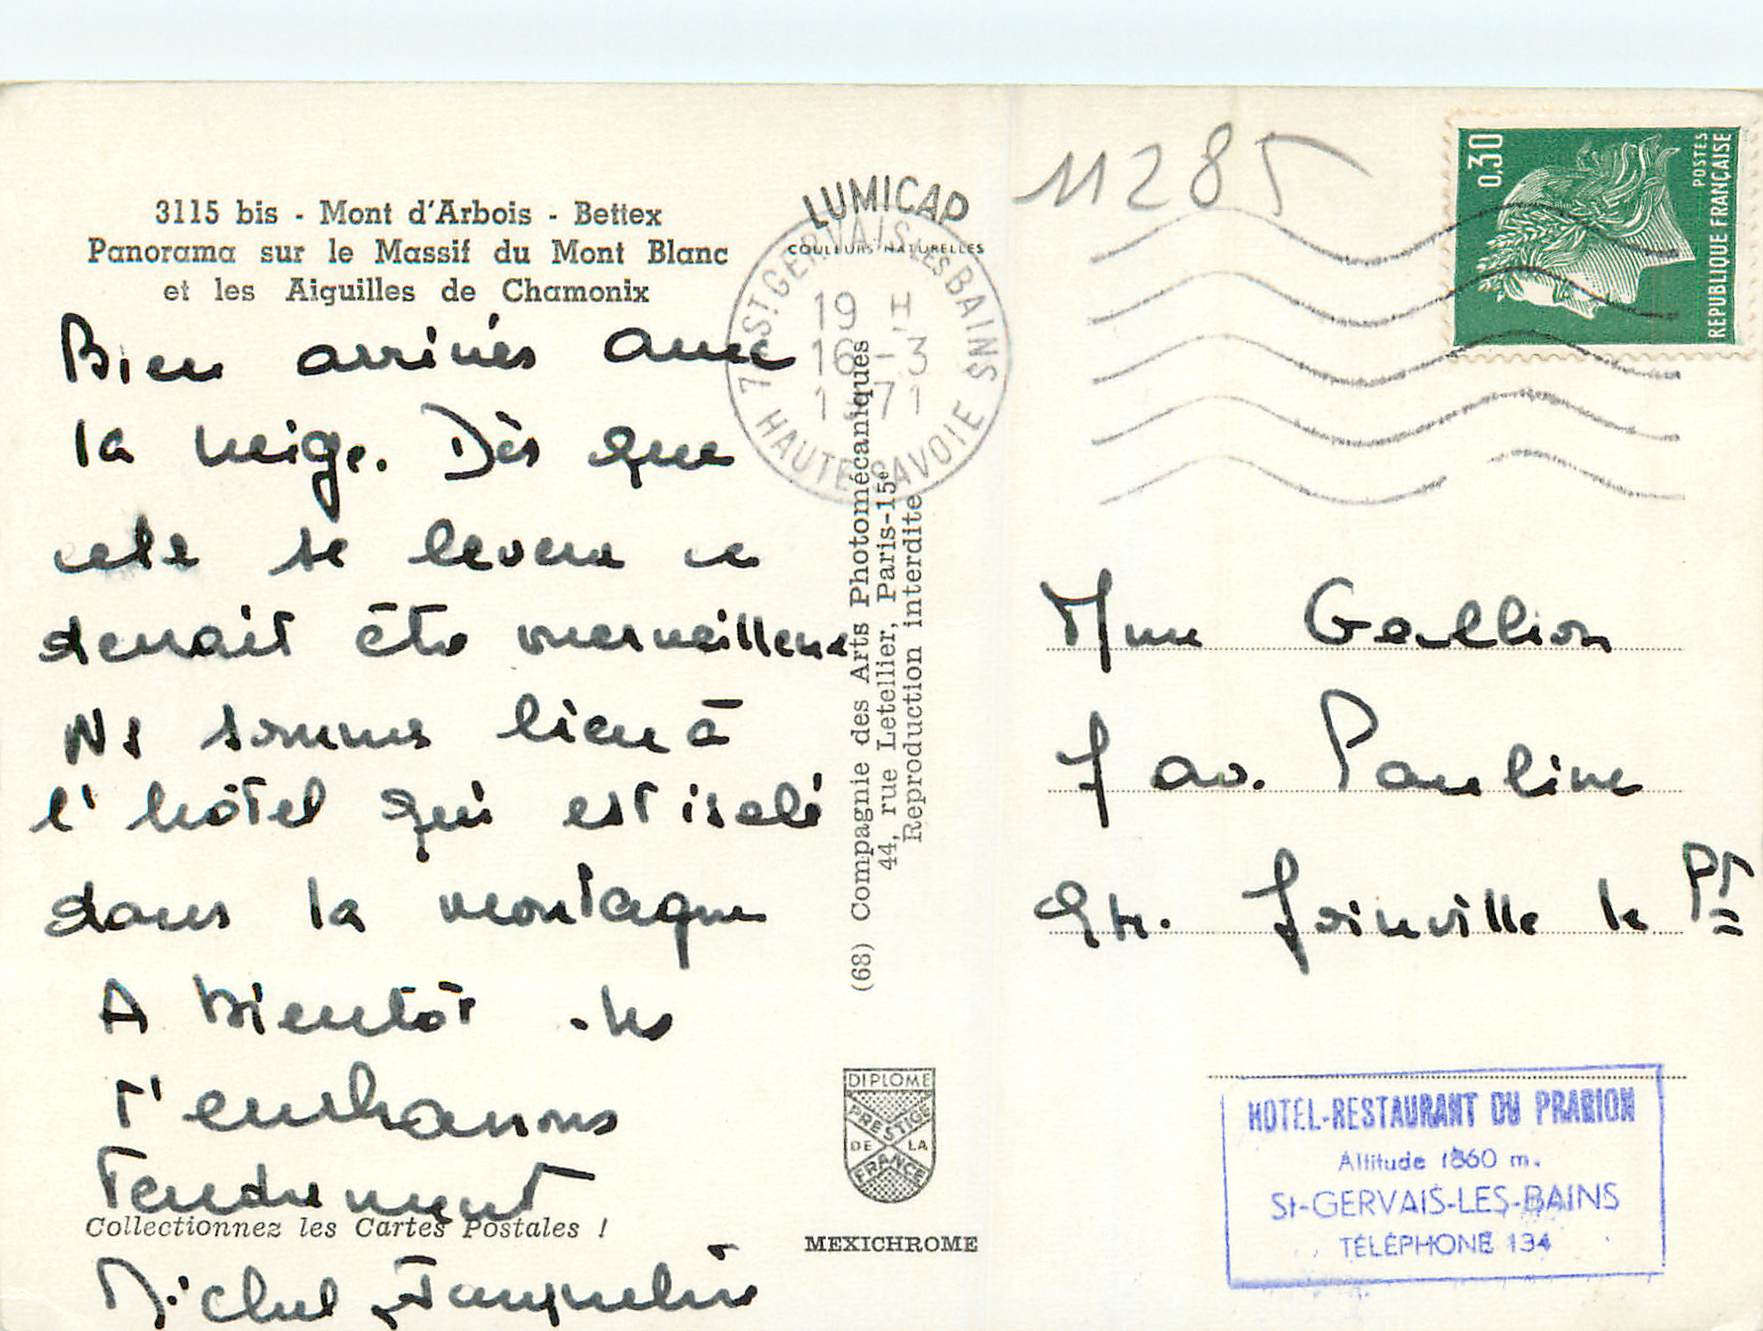 3115 bis - Mont d'Arbois - Bettex
Panorama sur le Massif du Mont Blanc
et les Aiguilles de Chamonix
Bien arrivés avec
la neige. Dès que
cela se levera ce
devrait être merveilleux
Ns sommes bien à
l'hôtel qui est isolé
dans la montagne
A Bientôt. ns
t'embrassons
Tendrement
Collectionnez les Cartes Postales !
Michel Jacqueline
LUMICAP
COULEURS NATURELLES
74 ST GERVAIS-LES BAINS
19 H
16 - 3
1971
HAUTE SAVOIE
(68) Compagnie des Arts Photomécaniques
44, rue Letellier, Paris-15e
Reproduction interdite
DIPLOME
PRESTIGE
DE LA
FRANCE
MEXICHROME
11285
0,30
POSTES
REPUBLIQUE FRANÇAISE
Mme Gallion
7 av. Pauline
94. Joinville le Pt
HOTEL-RESTAURANT DU PRARION
Altitude 1860 m.
St-GERVAIS-LES-BAINS
TÉLÉPHONE 134